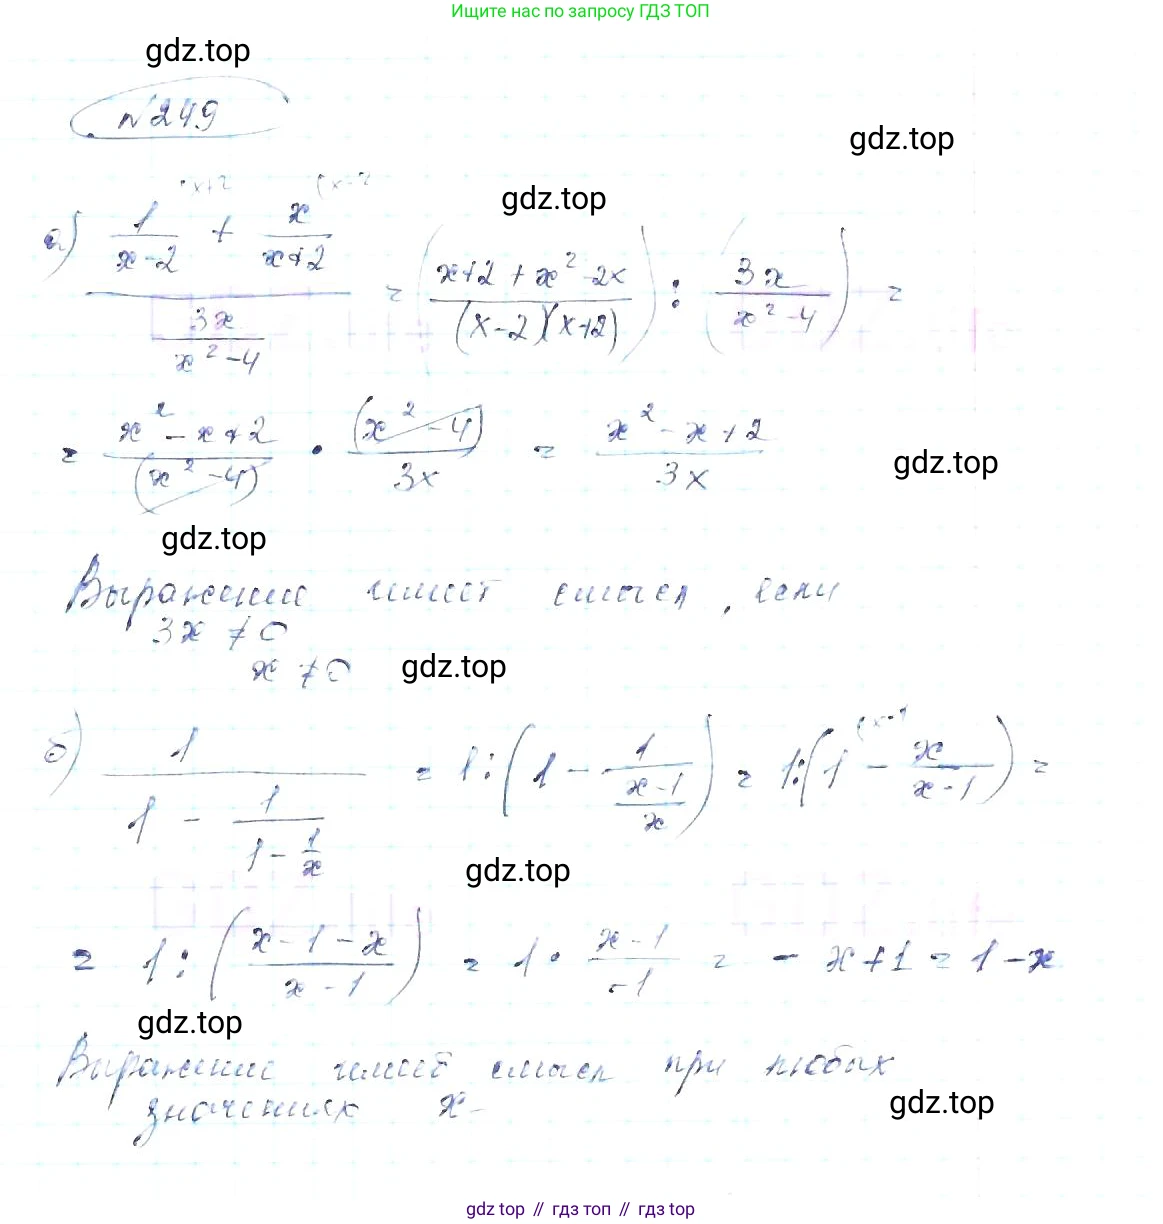 Ищите нас по запросу ГДЗ ТОП
gdz.top
№249
gdz.top
gdz.top
а) (1/(x-2) + x/(x+2)) / (3x/(x²-4)) = ((x+2+x²-2x)/((x-2)(x+2))) : (3x/(x²-4)) =
= (x²-x+2)/(x²-4) · (x²-4)/3x = (x²-x+2)/3x
gdz.top
gdz.top
Выражение имеет смысл, если
3x ≠ 0
x ≠ 0
gdz.top
б) 1/(1 - 1/(1 - 1/x)) = 1:(1 - 1/((x-1)/x)) = 1:(1 - x/(x-1)) =
gdz.top
= 1:((x-1-x)/(x-1)) = 1 · (x-1)/-1 = -x+1 = 1-x
gdz.top
Выражение имеет смысл при любых
значениях x
gdz.top
gdz top // гдз топ // гдз top